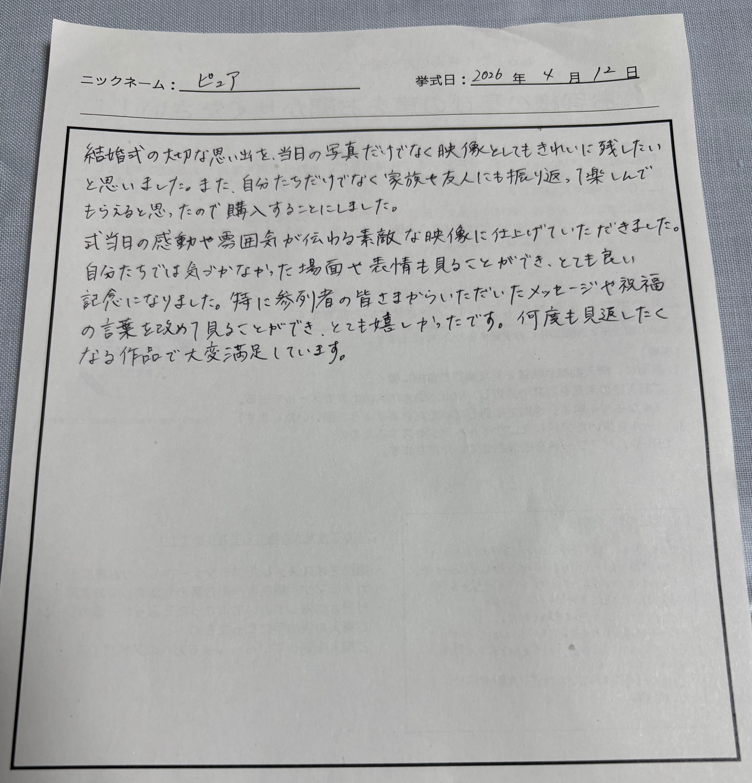 ニックネーム：ピュア 挙式日：2026年4月12日
結婚式の大切な思い出を、当日の写真だけでなく映像としてもきれいに残したい
と思いました。また、自分たちだけでなく家族や友人にも振り返って楽しんで
もらえると思ったので購入することにしました。
式当日の感動や雰囲気が伝わる素敵な映像に仕上げていただきました。
自分たちでは気づかなかった場面や表情も見ることができ、とても良い
記念になりました。特に参列者の皆さまからいただいたメッセージや祝福
の言葉を改めて見ることができ、とても嬉しかったです。何度も見返したく
なる作品で大変満足しています。